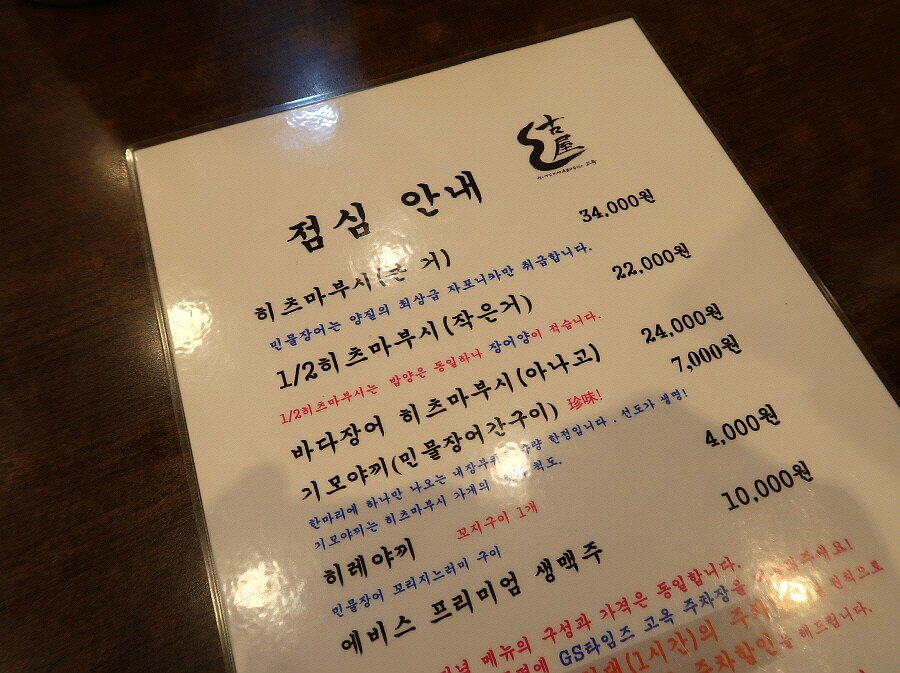 古屋
HITSUMABUSHI 고옥
점심 안내
히츠마부시(큰 거) 34,000원
민물장어는 양질의 최상급 자포니카만 취급합니다.
1/2히츠마부시(작은거) 22,000원
1/2히츠마부시는 밥양은 동일하나 장어양이 적습니다.
바다장어 히츠마부시(아나고) 24,000원
기모야끼(민물장어간구이) 珍味! 7,000원
한마리에 하나만 나오는 내장부위 수량 한정입니다. 선도가 생명!
기모야끼는 히츠마부시 가게의 척도.
히레야끼 꼬지구이 1개 4,000원
민물장어 꼬리지느러미 구이
에비스 프리미엄 생맥주 10,000원
메뉴의 구성과 가격은 동일합니다.
GS타임즈 고옥 주차장을 주세요!
(1시간)의 주차 원칙으로
주차할인을 해드립니다.